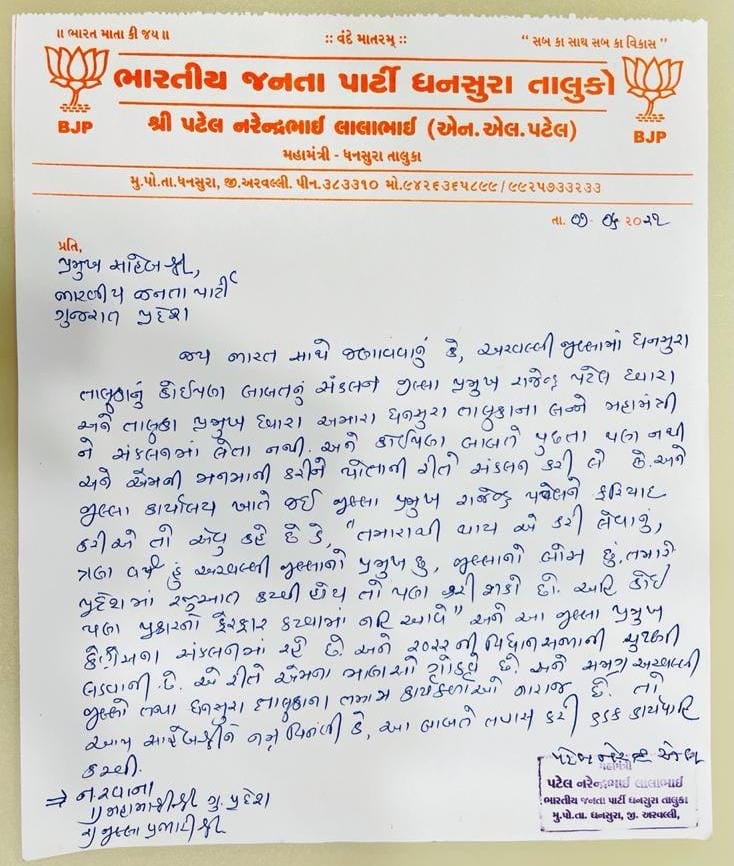 ॥ ભારત માતા કી જય॥
:: વંદે માતરમ્ ::
“ સબ કા સાથ સબ કા વિકાસ ”
ભારતીય જનતા પાર્ટી ધનસુરા તાલુકો
BJP
BJP
શ્રી પટેલ નરેન્દ્રભાઈ લાલાભાઈ (એન.એલ.પટેલ)
મહામંત્રી - ધનસુરા તાલુકા
મુ.પો.તા.ધનસુરા, જી.અરવલ્લી. પીન.૩૮૩૩૧૦ મો.૯૪૨૬૩૬૫૮૯૯/૯૯૨૫૭૩૩૨૩૩
તા.
પ્રતિ,
પ્રમુખ સાહેબશ્રી,
ભારતીય જનતા પાર્ટી
ગુજરાત પ્રદેશ
જય ભારત સાથે જણાવવાનું કે, અરવલ્લી જીલ્લામાં ધનસુરા
તાલુકાનું કોઈપણ બાબતનું સંકલન જીલ્લા પ્રમુખ રાજેન્દ્ર પટેલ દ્વારા
અને તાલુકા પ્રમુખ દ્વારા અમારા ધનસુરા તાલુકાના બન્ને મહામંત્રી
ને સંકલનમાં લેતા નથી. અને કોઈપણ બાબતે પુછતા પણ નથી
અને એમની મનમાની કરીને પોતાની રીતે સંકલન કરી લે છે. અને
જીલ્લા કાર્યાલય ખાતે જઈ જીલ્લા પ્રમુખ રાજેન્દ્ર પટેલને ફરિયાદ
કરીએ તો એવુ કહે છે કે, “તમારાથી થાય એ કરી લેવાનું,
ત્રણ વર્ષ હું અરવલ્લી જીલ્લાનો પ્રમુખ છુ, જીલ્લાનો બોસ છું. તમારે
પ્રદેશમાં રજુઆત કરવી હોય તો પણ કરી શકો છો. અહિ કોઈ
પણ પ્રકારનો ફેરફાર કરવામાં નહિ આવે” અને આ જીલ્લા પ્રમુખ
કોંગ્રેસના સંકલનમાં રહે છે. અને ૨૦૨૨ની વિધાનસભાની ચુંટણી
લડવાની છે. એ રીતે એમના માણસો ગોઠવે છે. અને સમગ્ર અરવલ્લી
જીલ્લો તથા ધનસુરા તાલુકાના તમામ કાર્યકર્તાઓ નારાજ છે. તો
આપ સાહેબશ્રીને નમ્ર વિનંતી કે, આ બાબતે તપાસ કરી કડક કાર્યવાહિ
કરવી.
પટેલ નરેન્દ્ર એલ
⇒ નકલ રવાના
૧) મહામંત્રીશ્રી ગુ. પ્રદેશ
૨) જીલ્લા પ્રભારીશ્રી
મહામંત્રી
પટેલ નરેન્દ્રભાઈ લાલાભાઈ
ભારતીય જનતા પાર્ટી ધનસુરા તાલુકા
મુ.પો.તા. ધનસુરા, જી. અરવલ્લી,